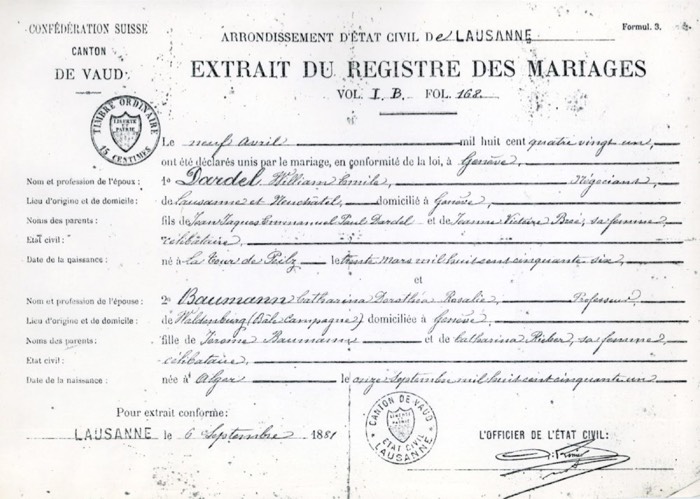 CONFÉDÉRATION SUISSE
CANTON
DE VAUD
Formul. 3.
ARRONDISSEMENT D'ÉTAT CIVIL De LAUSANNE
EXTRAIT DU REGISTRE DES MARIAGES
VOL. I. B. FOL. 168.
TIMBRE ORDINAIRE
LIBERTÉ ET PATRIE
15 CENTIMES
Le neuf Avril mil huit cent quatre vingt un,
ont été déclarés unis par le mariage, en conformité de la loi, à Genève,
Nom et profession de l'époux: 1º Dardel, William Emile, Négociant,
Lieu d'origine et de domicile: de Lausanne et Neuchâtel, domicilié à Genève,
Noms des parents: fils de Jean Jaques Emmanuel Paul Dardel et de Jeanne sa femme
Etat civil: célibataire,
Date de la naissance: né à La Tour de Peilz le trente Mars mil huit cent cinquante six,
et
Nom et profession de l'épouse: 2º Baumann Catharina Dorothéa Rosalie, Professeur,
Lieu d'origine et de domicile: de Waldenburg (Bâle Campagne) domiciliée à Genève,
Noms des parents: fille de Jérome Baumann et de Catharina Rieber, sa femme,
Etat civil: célibataire,
Date de la naissance: née à Alger le onze Septembre mil huit cent cinquante un
Pour extrait conforme:
LAUSANNE le 6 Septembre 1881
CANTON DE VAUD
LIBERTÉ ET PATRIE
ETAT CIVIL
LAUSANNE
L'OFFICIER DE L'ÉTAT CIVIL: